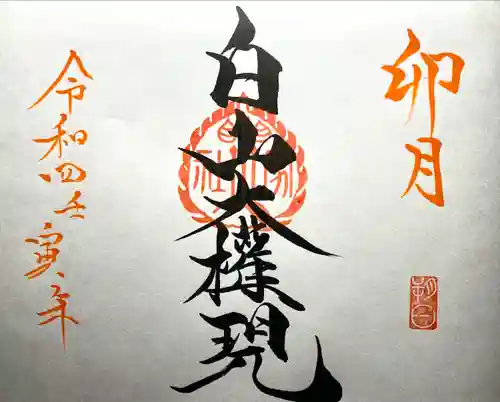 卯月
朔日
白山大権現
令和四壬寅年